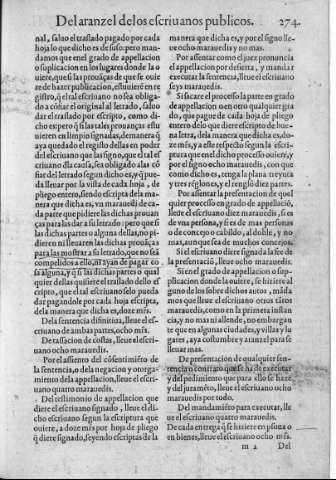 Del aranzel delos escriuanos publicos. 274.
nal, saluo el traslado pagado por cada
hoja lo que dicho es de suso: pero man-
damos que enel grado de appellacion
o suplicacion en los lugares donde la o
uiere, que si las prouãças de que se ouie
re de hazer publicacion, estuuierẽ en re
gistro, q̃ el escriuano no sea obliga-
do a cõtar el original al letrado, saluo
dar el traslado por escripto, como di-
cho es: pero q̃ si las tales prouanças estu
uieren en limpio signadas, de manera q̃
aya quedado el registo dellas en poder
del escriuano que las signo, que el tal es
criuano dla causa, sea obligado alas cõ
fiar del letrado segun dicho es, y q̃ pue
da lleuar por la vista de cada hoja, de
pliego entero, siendo escripta dela ma
nera que dicha es, vn marauedi de ca-
da parte que pidiere las dichas prouan
ças para las dar a su letrado: pero que si
las dichas partes o alguna dellas, no pi-
dieren ni lleuaren las dichas prouãças
para las mostrar a su letrado, que no sea
compelidos a ello, ni ayan de pagar co
sa alguna, y q̃ si las dichas partes o qual
quier dellas quisiere el traslado dello es
cripto, que el tal escriuano selo pueda
dar pagandole por cada hoja escripta,
dela manera que dicha es, doze mr̃s.
Dela sentencia difinitiua, lleue el es-
criuano de ambas partes, ocho mr̃s.
De tassacion de costas, lleue el escri-
uano ocho marauedis.
Por el assiento del cõsentimiẽto de
la sentencia, o dela negacion y otorga-
miento dela appellacion, lleue el escri-
uano quatro marauedis.
Del testimonio de appellacion que
diere el escriuano signado, lleue el di-
cho escriuano segun la escriptura que
ouiere, a doze mr̃s por hoja de pliego
q̃ diere signado, seyendo escriptas de la
manera que dicha es, y por el signo lle-
ue ocho marauedis y no mas.
Por assentar como el juez pronuncia
el appellacion por desierta, y mandar
executar la sentencia, lleue el escriuano
seys marauedis.
Si sacare el processo la parte en grado
de appellacion o en otro qualquier gra
do, que pague de cada hoja de pliego
entero delo que diere escripto de bue-
na letra, dela manera que dicha es, do-
ze mr̃s, y a este respecto segun la escri-
ptura que enel dicho processo ouiere, y
por el signo ocho marauedis, con que
como dicho es, tenga la plana treynta
y tres reglones, y el renglõ diez partes.
Por assentar la presentacion de qual
quier processo en grado de appelaciõ,
lleue el escriuano diez marauedis, si es
de vna persona, y si es de mas personas
o de concejo o cabildo, al doble, y no
mas, aunque sea de muchos concejos.
Si el escriuano diere signada la fee de
la presentaciõ, lleue ocho marauedis.
Si enel grado de appellacion o sup-
plicacion donde la ouiere, se hiziere al
guno delos sobre dichos autos, mãda
mos que lleue el escriuano otros tãtos
marauedis, como en la primera instan
cia, y no mas ni allende, no embargan
te que en algunas ciudades, y villas y lu
gares, aya costumbre y aranzel para se
lleuar mas.
De presentacion de qualquier sen-
tencia o contrato que se ha de executar
y del pedimiento que para ello se haze
y del juramẽto, lleue el escriuano ocho
marauedis por todo.
Del mandamiẽto para executar, lle
ue el escriuano quatro marauedis.
De cada entrega q̃ se hiziere en psona o
en bienes, lleue el escriuano ocho mr̃s.
m 2 Del